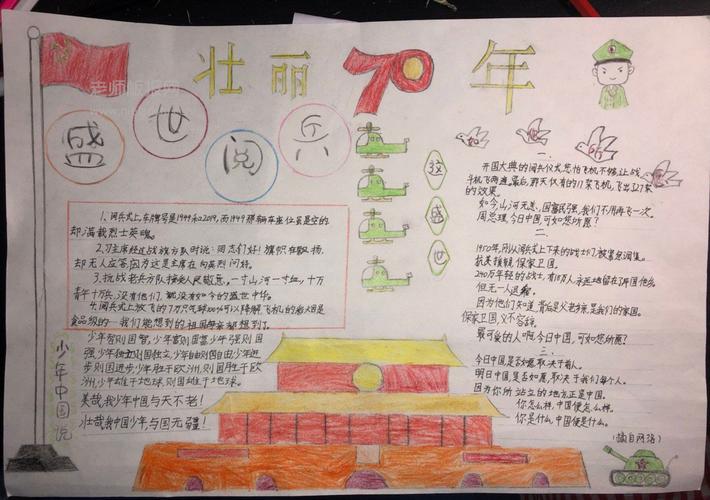 壮丽70年
盛世阅兵
这盛世
如您所愿
1、阅兵式上,车牌号是1949和2019,而1949那辆车座位虽是空的
却满载烈士英魂。
2、习主席经过战旗方队时说:同志们好!旗帜在飘扬,
却无人应答,因为这是主席在向英烈问好。
3、抗战老兵方队接受人民敬意,一寸山河一寸血,十万
青年十万兵,没有他们,都没有如今的盛世中华。
食品级的——我们能想到的祖国母亲都想到了。
少年中国说
少年智则国智,少年富则国富,少年强则国
强,少年独立则国独立,少年自由则国自由,少年进
步则国进步,少年胜于欧洲,则国胜于欧
洲,少年雄于地球,则国雄于地球。
美哉我少年中国与天不老!
壮哉我中国少年,与国无疆!
一、
开国大典的阅兵仪式,您怕飞机不够,让战
斗机飞两遍。
的效果。
如今,山河无恙,国富民强,我们不用再飞一次。
周总理,今日中国,可如您所愿?
二、
抗美援朝,保家卫国。
但无一人退缩。
因为他们知道,背后是父老乡亲,是我们的家国。
保家卫国,义不容辞。
最可爱的人啊,今日中国,可如您所愿?
三、
今日中国是否如愿,取决于前人。
明日中国,是否如愿,取决于我们每个人。
因为你所站立的地方正是中国。
你怎么样,中国便怎么样。
你是什么,中国便是什么。
(摘自网络)